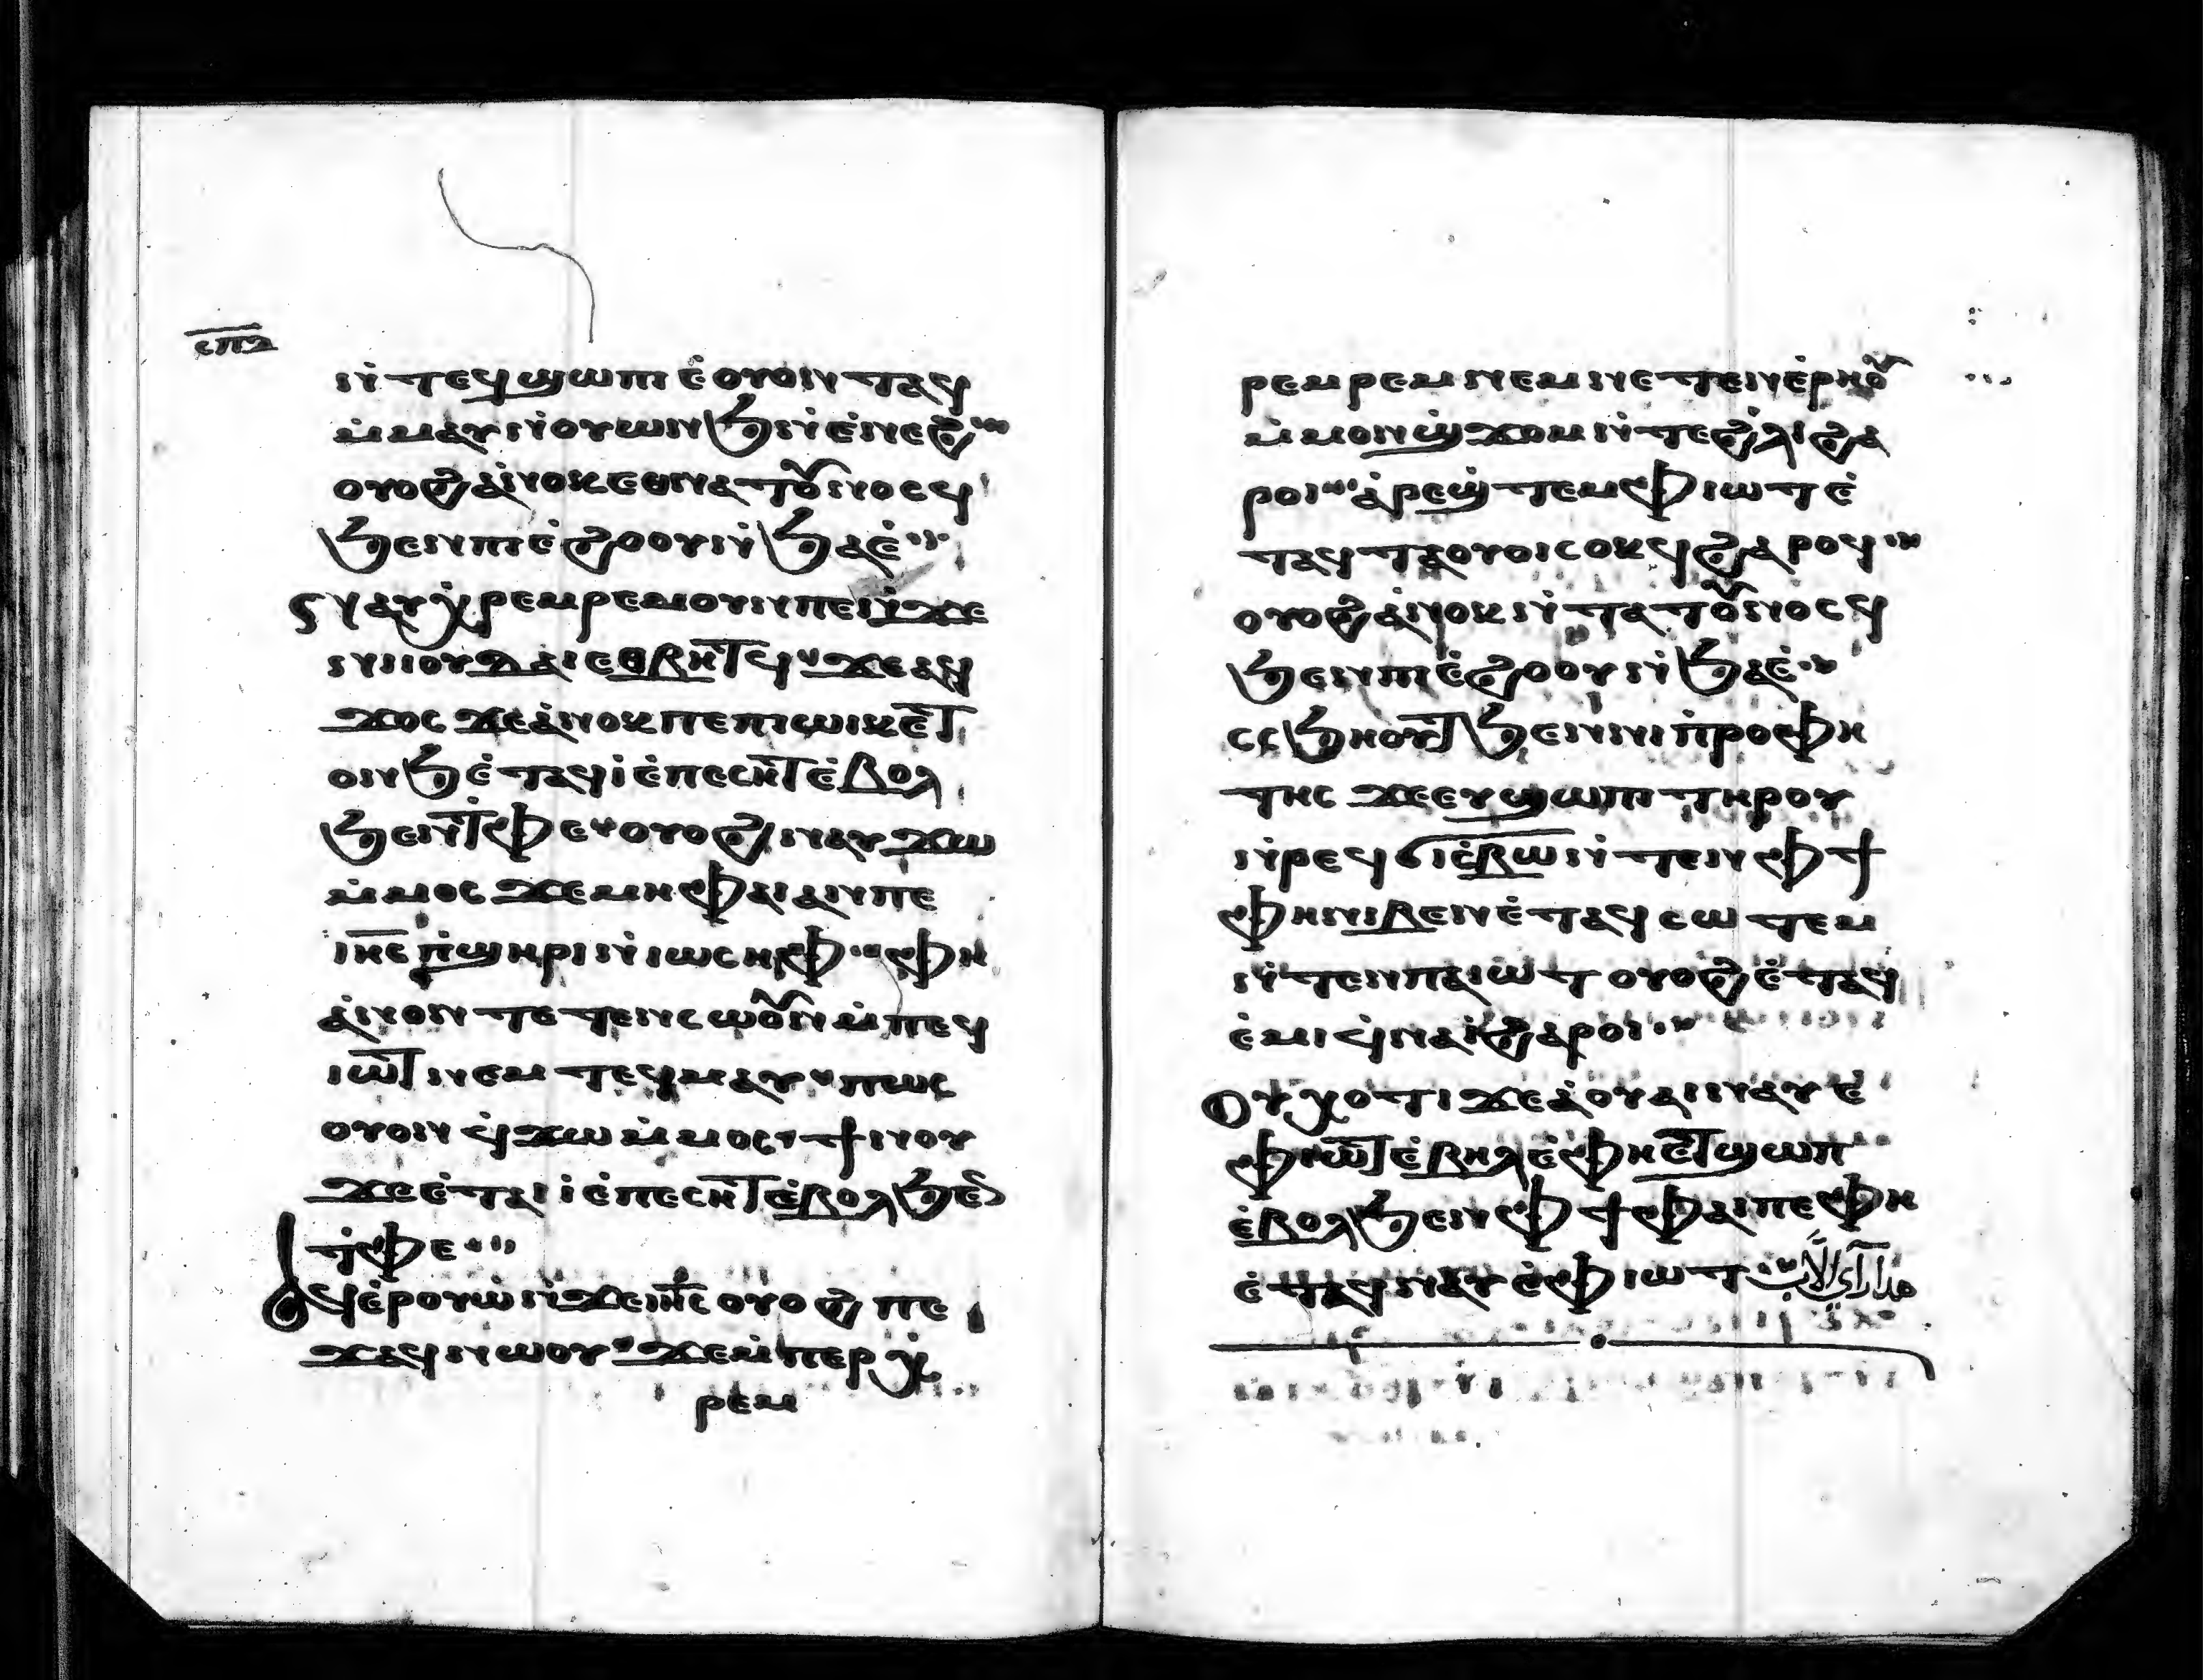 ⲥⲡⲁ
ⲛ̇ⲧⲉϥϣⲱⲡⲓ ⲉ̇ⲟⲩⲟⲛ ⲧⲁϥ
ⲙ̇ⲙⲁⲩ ⲛ̇ⲟⲩⲱⲛϧ ⲛ̇ⲉ̇ⲛⲉϩ
ⲟⲩⲟϩ ⲁ̇ⲛⲟⲕ ⲉⲑⲛⲁⲧⲟⲩⲛⲟⲥϥ
ϧⲉⲛⲡⲓⲉ̇ϩⲟⲟⲩ ⲛ̇ϧⲁⲉ̇
ⲛⲁⲩⲭⲣⲉⲙⲣⲉⲙ ⲟⲩⲛ ⲡⲉ ⲛ̇ϫⲉ
ⲛⲓⲓⲟⲩⲇⲁⲓ ⲉⲑⲃⲏⲧϥ ϫⲉ ⲁϥ
ϫⲟⲥ ϫⲉ ⲁ̇ⲛⲟⲕ ⲡⲉ ⲡⲓⲱⲓⲕ ⲉⲧ
ⲟⲛϧ ⲉ̇ⲧⲁϥⲓ̇ ⲉ̇ⲡⲉⲥⲏⲧ ⲉ̇ⲃⲟⲗ
ϧⲉⲛ ⲧ̇ⲫⲉ ⲟⲩⲟϩ ⲛⲁⲩϫⲱ
ⲙ̇ⲙⲟⲥ ϫⲉ ⲙⲏ ⲫⲁⲓ ⲁⲛ ⲡⲉ
ⲓⲏ̅ⲥ ⲡ̇ϣⲏⲣⲓ ⲛ̇ⲓⲱⲥⲏⲫ ⲫⲏ
ⲁ̇ⲛⲟⲛ ⲧⲉⲧⲉⲛⲥⲱⲟⲩⲛ ⲙ̇ⲡⲉϥ
ⲓⲱⲧ ⲛⲉⲙ ⲧⲉϥⲙⲁⲩ ⲡⲱⲥ
ⲟⲩⲟⲛ ϥ̇ϫⲱ ⲙ̇ⲙⲟⲥ ϯⲛⲟⲩ
ϫⲉ ⲉ̇ⲧⲁⲓⲓ̇ ⲉ̇ⲡⲉⲥⲏⲧ ⲉ̇ⲃⲟⲗ ϧⲉⲛ
ⲧ̇ⲫⲉ
ⲁϥⲉ̇ⲣⲟⲩⲱ̇ ⲛ̇ϫⲉ ⲓⲏ̅ⲥ ⲟⲩⲟϩ ⲡⲉ
ϫⲁϥ ⲛⲱⲟⲩ ϫⲉ ⲙ̇ⲡⲉⲣⲭ
ⲣⲉⲙ
ⲣⲉⲙⲣⲉⲙ ⲛⲉⲙ ⲛⲉⲧⲉⲛⲉ̇ⲣⲏⲟⲩ
ⲙ̇ⲙⲟⲛ ϣ̇ϫⲟⲙ ⲛ̇ⲧⲉ ϩ̇ⲗⲓ ϩⲁ
ⲣⲟⲓ ⲁ̇ⲣⲉϣ̇ⲧⲉⲙ ⲫⲓⲱⲧ ⲉ̇
ⲧⲁϥⲧⲁⲟⲩⲟⲓ ⲥⲟⲕϥ ϩⲁⲣⲟϥ
ⲟⲩⲟϩ ⲁ̇ⲛⲟⲕ ⲛ̇ⲧⲁⲧⲟⲩⲛⲟⲥϥ
ϧⲉⲛⲡⲓⲉ̇ϩⲟⲟⲩ ⲛ̇ϧⲁⲉ̇
ⲥⲥϧⲏⲟⲩⲧ ϧⲉⲛ ⲛⲓⲡ̇ⲣⲟⲫⲏ
ⲧⲏⲥ ϫⲉ ⲉⲩϣⲱⲡⲓ ⲧⲏⲣⲟⲩ
ⲛ̇ⲣⲉϥϭⲓⲉ̇ⲃⲱ ⲛ̇ⲧⲉⲛ ⲫϯ
ⲫⲏ ⲛⲓⲃⲉⲛ ⲉ̇ⲧⲁϥⲥⲱⲧⲉⲙ
ⲛ̇ⲧⲉⲛ ⲡⲁⲓⲱⲧ ⲟⲩⲟϩ ⲉ̇ⲧⲁϥ
ⲉ̇ⲙⲓ ϥ̇ⲛⲁⲓ̇ ϩⲁⲣⲟⲓ
ⲟⲩⲭⲟⲧⲓ ϫⲉ ⲁ̇ⲟⲩⲁⲓ ⲛⲁⲩ ⲉ̇
ⲫⲓⲱⲧ ⲉ̇ⲃⲏⲗ ⲉ̇ⲫⲏ ⲉⲧϣⲱⲡ
ⲉ̇ⲃⲟⲗ ϧⲉⲛ ⲫϯ ⲫⲁⲓ ⲡⲉ ⲫⲏ
ⲉ̇ⲧⲁϥⲛⲁⲩ ⲉ̇ⲫⲓⲱⲧ